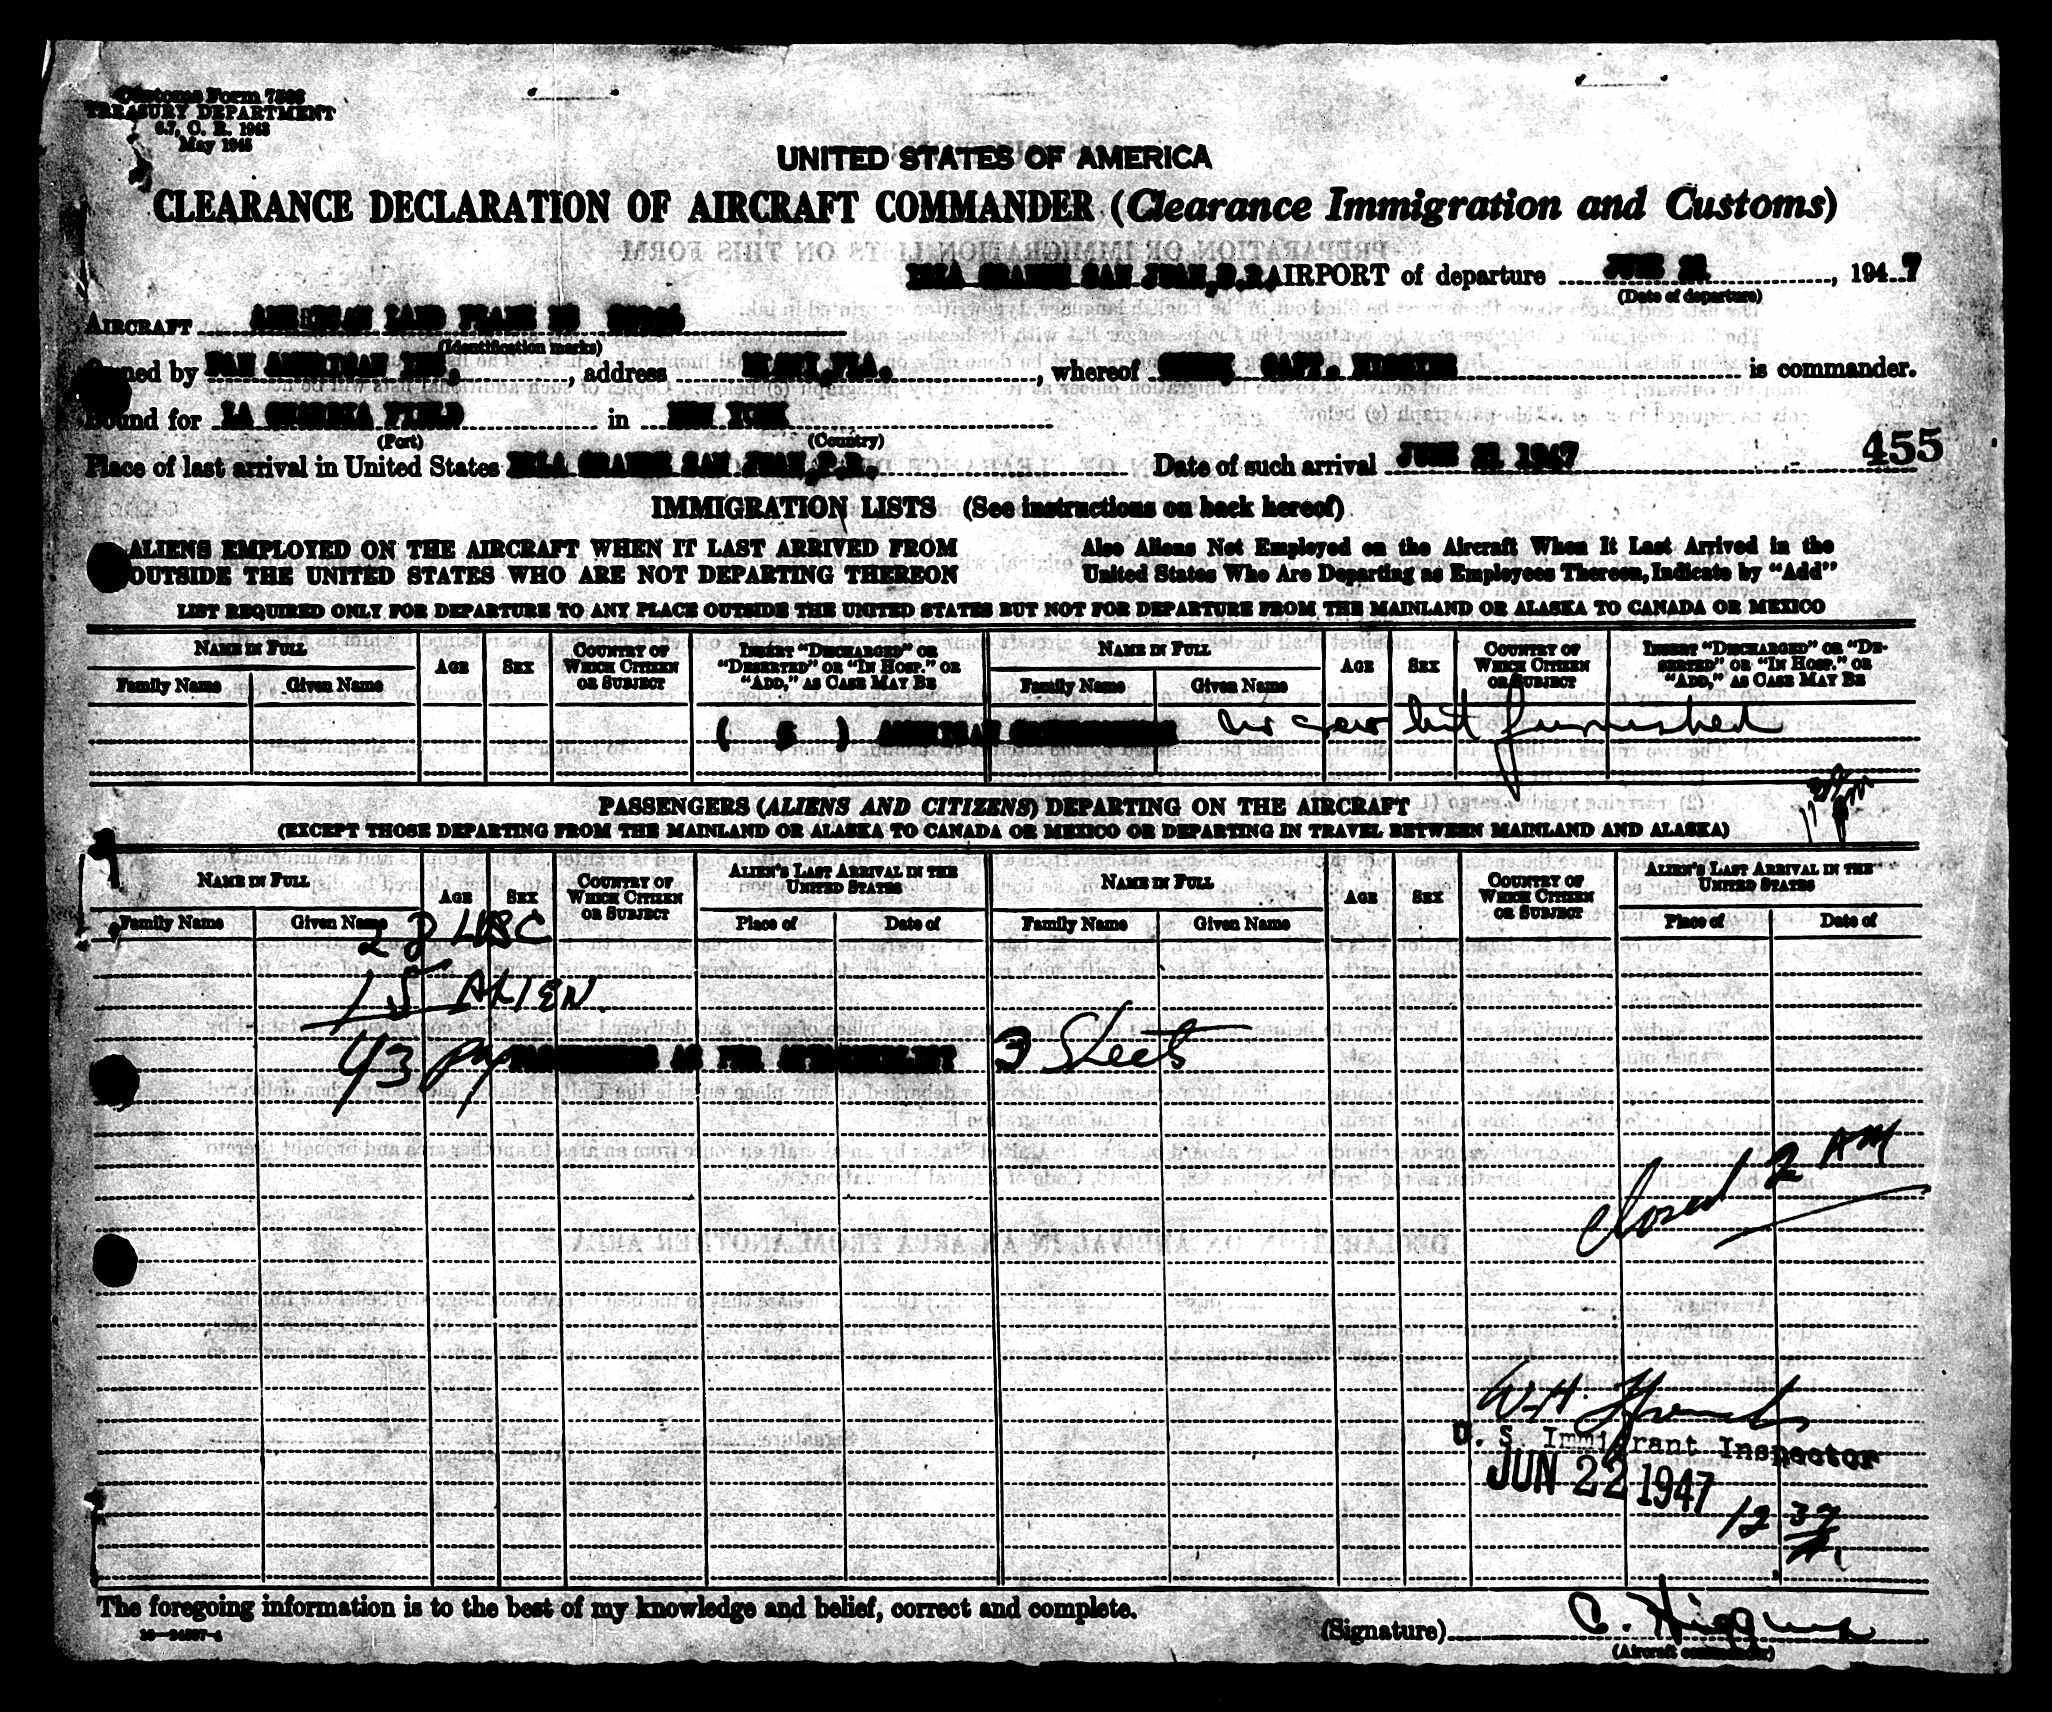 Customs Form 7506
TREASURY DEPARTMENT
6.7, C. R. 1943
May 1945
UNITED STATES OF AMERICA
CLEARANCE DECLARATION OF AIRCRAFT COMMANDER (Clearance Immigration and Customs)
ISLA GRANDE SAN JUAN, P.R. AIRPORT of departure JUNE, 194 7
(Date of departure)
AIRCRAFT AMERICAN LAND PLANE NC
(Identification marks)
Owned by PAN AMERICAN INC., address MIAMI, FLA., whereof CAPT. is commander.
Bound for LA GUARDIA FIELD in NEW YORK
(Port) (Country)
Place of last arrival in United States ISLA GRANDE SAN JUAN, P.R. Date of such arrival JUNE 21 1947 455
IMMIGRATION LISTS (See instructions on back hereof)
ALIENS EMPLOYED ON THE AIRCRAFT WHEN IT LAST ARRIVED FROM Also Aliens Not Employed on the Aircraft When It Last Arrived in the
OUTSIDE THE UNITED STATES WHO ARE NOT DEPARTING THEREON United States Who Are Departing as Employees Thereon, Indicate by "Add"
LIST REQUIRED ONLY FOR DEPARTURE TO ANY PLACE OUTSIDE THE UNITED STATES BUT NOT FOR DEPARTURE FROM THE MAINLAND OR ALASKA TO CANADA OR MEXICO
NAME IN FULL AGE SEX COUNTRY OF WHICH CITIZEN OR SUBJECT INSERT "DISCHARGED" OR "DESERTED" OR "IN HOSP." OR "ADD," AS CASE MAY BE NAME IN FULL AGE SEX COUNTRY OF WHICH CITIZEN OR SUBJECT INSERT "DISCHARGED" OR "DESERTED" OR "IN HOSP." OR "ADD," AS CASE MAY BE
Family Name Given Name Family Name Given Name
( 5 ) AMERICAN CREWMEMBERS no crew list furnished
PASSENGERS (ALIENS AND CITIZENS) DEPARTING ON THE AIRCRAFT
(EXCEPT THOSE DEPARTING FROM THE MAINLAND OR ALASKA TO CANADA OR MEXICO OR DEPARTING IN TRAVEL BETWEEN MAINLAND AND ALASKA)
NAME IN FULL AGE SEX COUNTRY OF WHICH CITIZEN OR SUBJECT ALIEN'S LAST ARRIVAL IN THE UNITED STATES NAME IN FULL AGE SEX COUNTRY OF WHICH CITIZEN OR SUBJECT ALIEN'S LAST ARRIVAL IN THE UNITED STATES
Family Name Given Name Place of Date of Family Name Given Name Place of Date of
28 USC
15 ALIEN
43 PASSENGERS AS PER ATTACHED LIST 3 Sheets
Closed 2 AM
W H
U. S. Immigrant Inspector
JUN 22 1947
12 37
The foregoing information is to the best of my knowledge and belief, correct and complete.
(Signature) C. Higgins
(Aircraft commander)